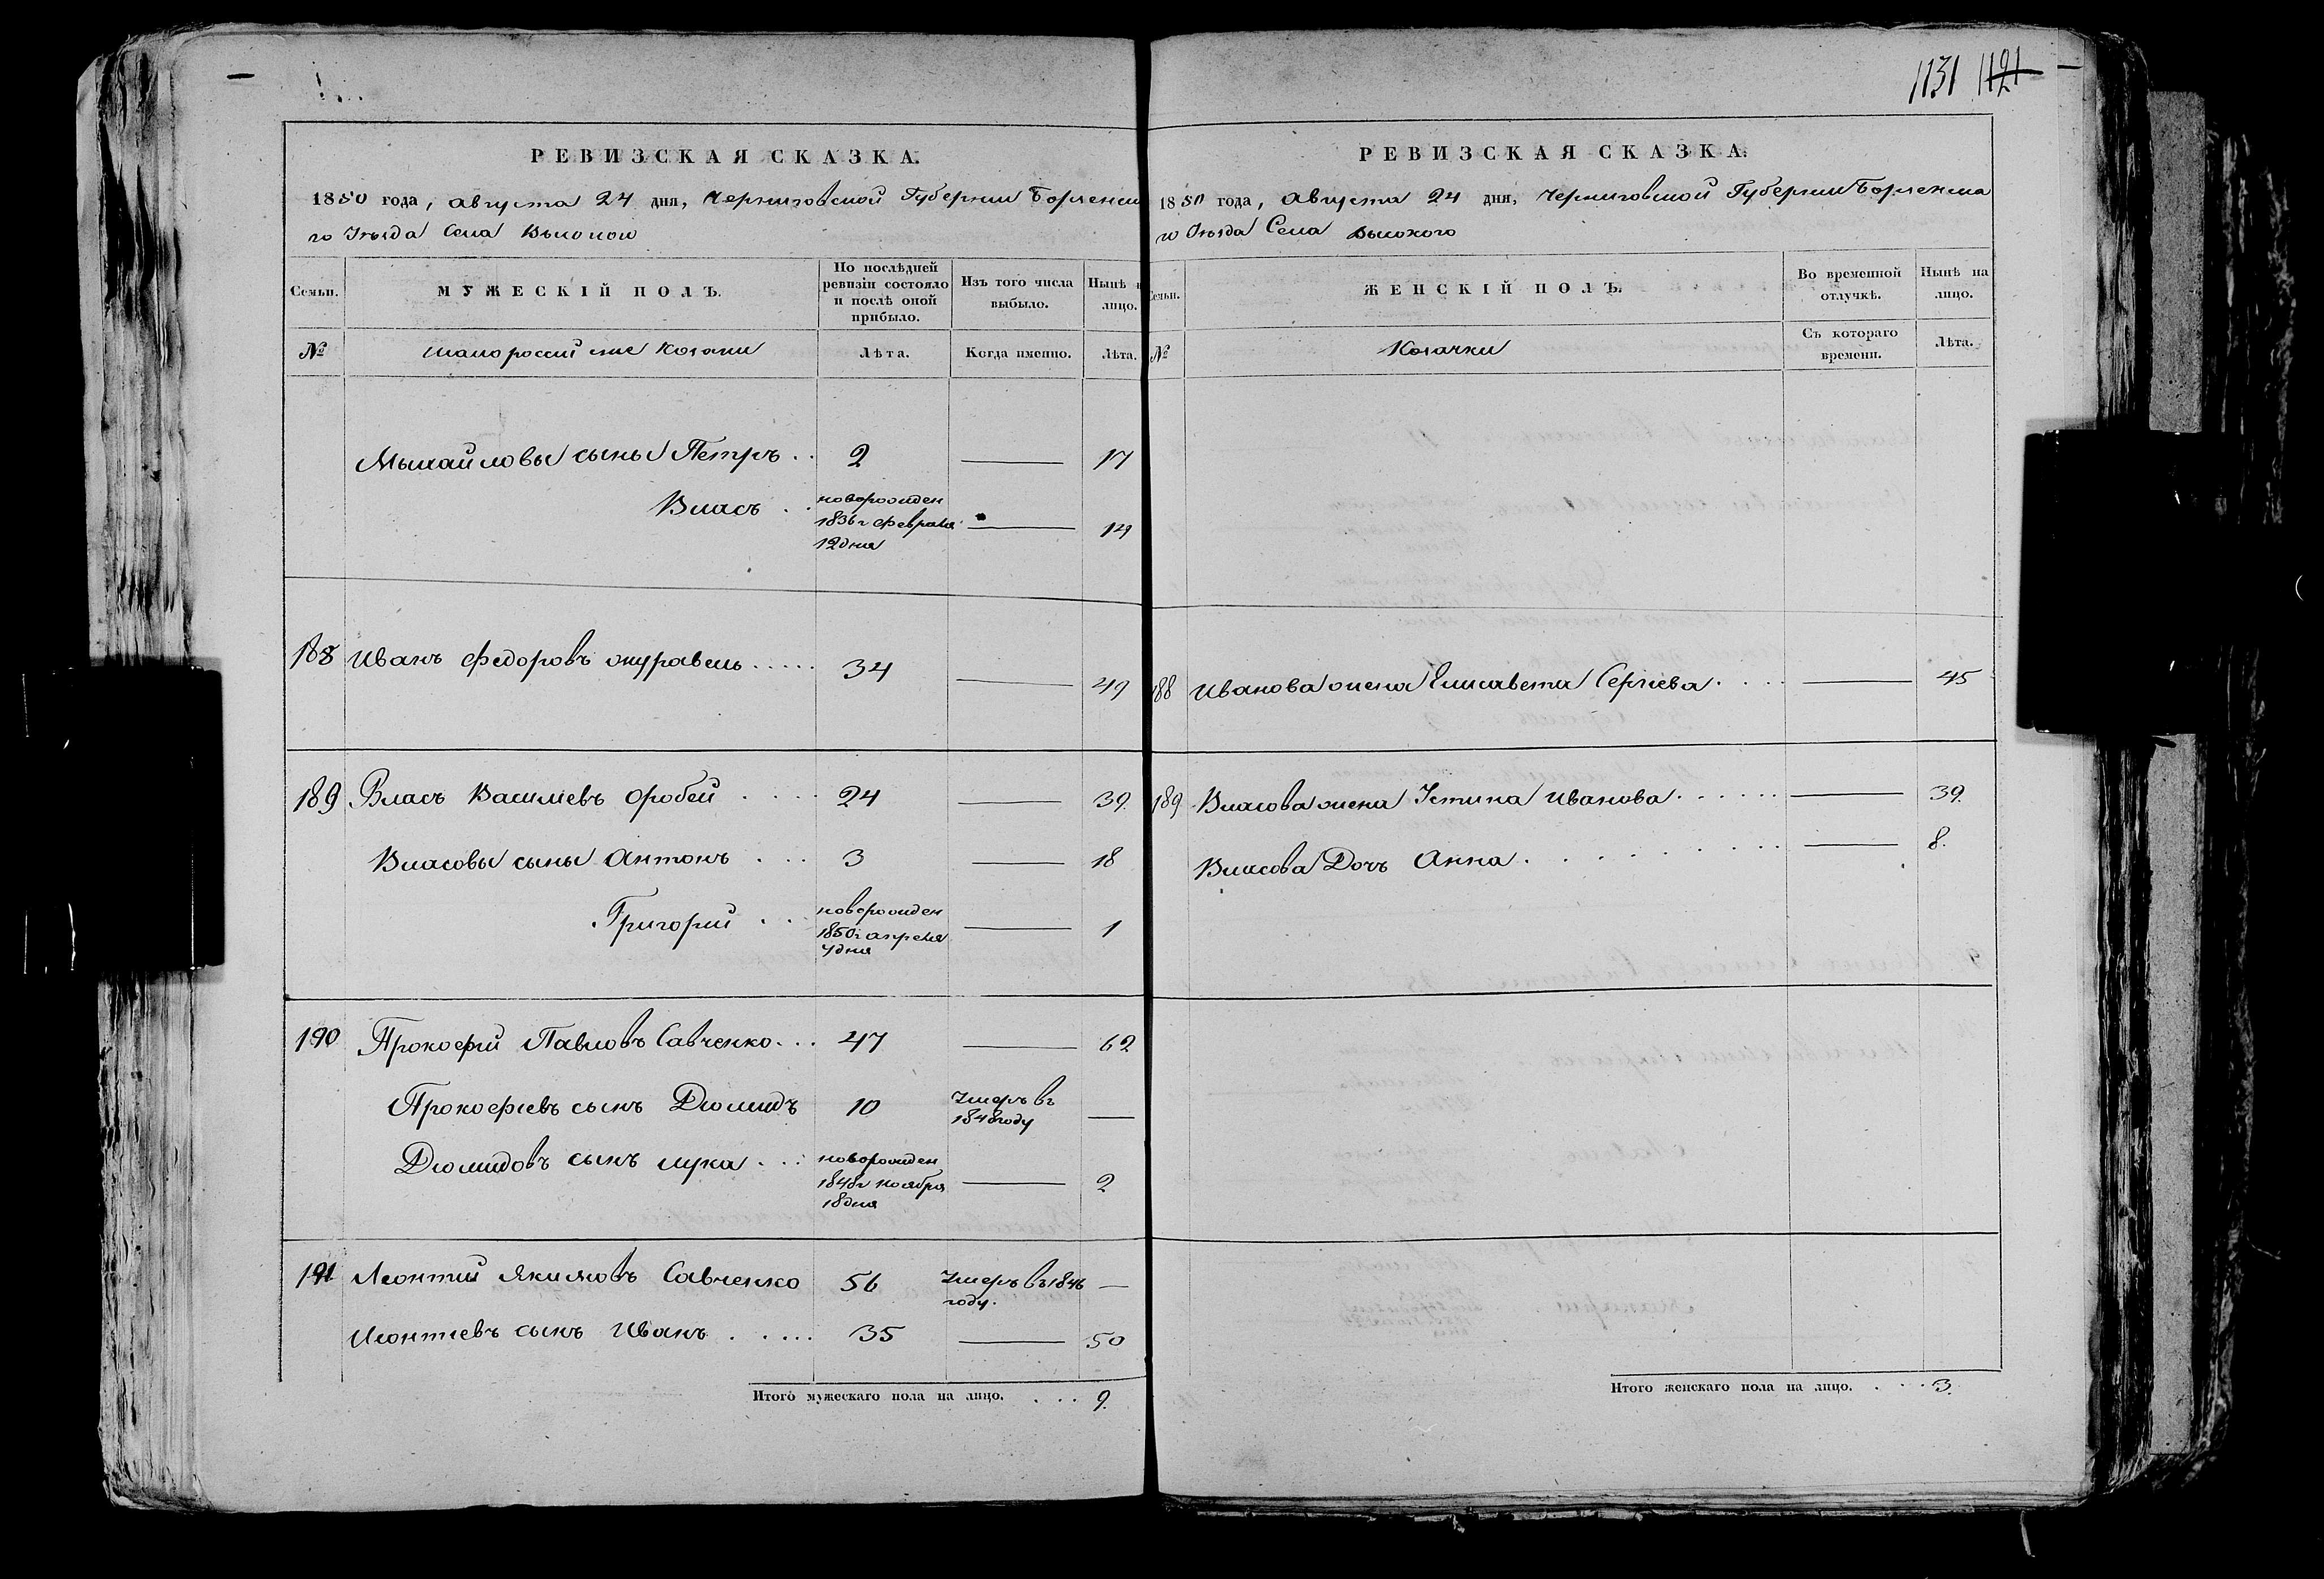 1131 1121
РЕВИЗСКАЯ СКАЗКА.
1850 года, августа 24 дня, Черниговской Губернии Борзенска
го Уезда Села Высокого
Семьи.
МУЖЕСКІЙ ПОЛЪ.
По послѣдней ревизіи состояло и послѣ оной прибыло.
Изъ того числа выбыло.
Нынѣ на лицо.
№
малороссийские козаки
Лѣта.
Когда именно.
Лѣта.
Михайловы сыны Петръ . . 2 — 17
Власъ . . новорожден 1836 г февраля 12 дня — 14
188 Иванъ Федоровъ журавель . . . . . 34 — 49
189 Власъ Василиевъ Оробей . . . . 24 — 39.
Власовы сыны Антонъ . . . 3 — 18
Григорий . . . новорожден 1850 г апреля 7 дня — 1
190 Прокофий Павловъ Савченко . . . 47 — 62
Прокофиевъ сынъ Диомидъ 10 Умеръ въ 1848 году —
Диомидовъ сынъ лука . . . новорожден 1848 г ноября 18 дня — 2
191 Леонтий Якимовъ Савченко 56 Умеръ въ 1846 году. —
Леонтиевъ сынъ Иванъ . . . . . 35 — 50
Итого мужескаго пола на лицо. . . . . 9.
РЕВИЗСКАЯ СКАЗКА.
1850 года, Августа 24 дня, Черниговской Губернии Борзенска
го Уезда Села Высокого
Семьи.
ЖЕНСКІЙ ПОЛЪ.
Во временной отлучкѣ.
Нынѣ на лицо.
№
Козачки
Съ котораго времени.
Лѣта.
188 Иванова жена Елисавета Сергиева . . . . — 45
189 Власова жена Устина Иванова . . . . . . — 39.
Власова Дочь Анна . . . . . . . . . . — 8.
Итого женскаго пола на лицо. . . . 3.